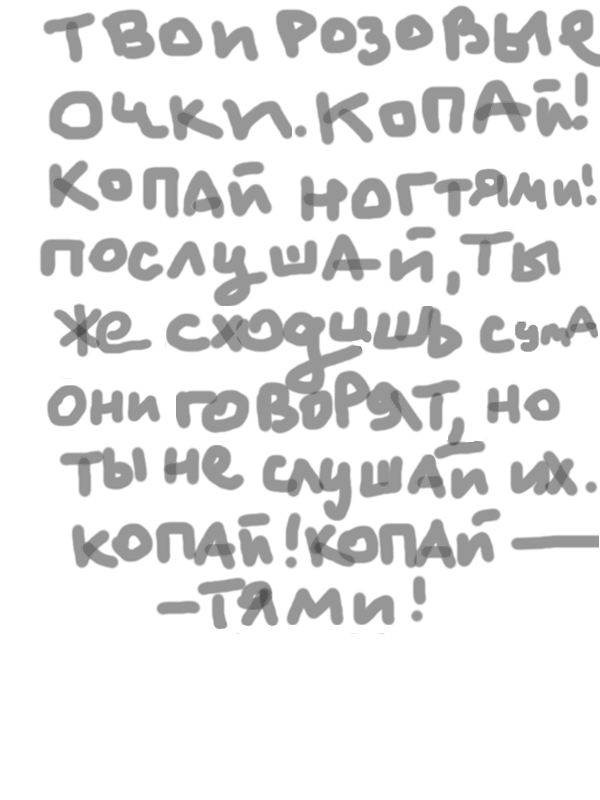 твои розовые
очки. копай!
копай ногтями!
послушай, ты
же сходишь сума
они говорят, но
ты не слушай их.
копай! копай —
-тями!